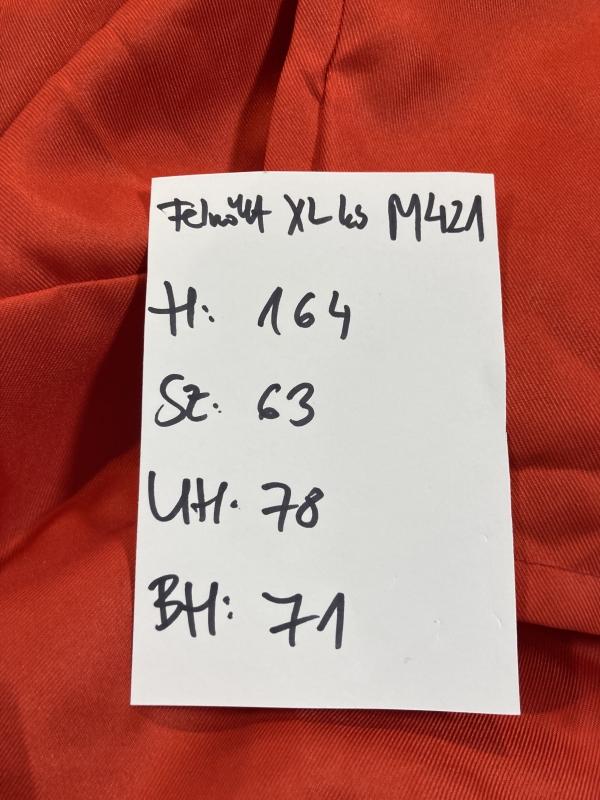 Felnőtt XL-es M421
H: 164
SZ: 63
UH: 78
BH: 71